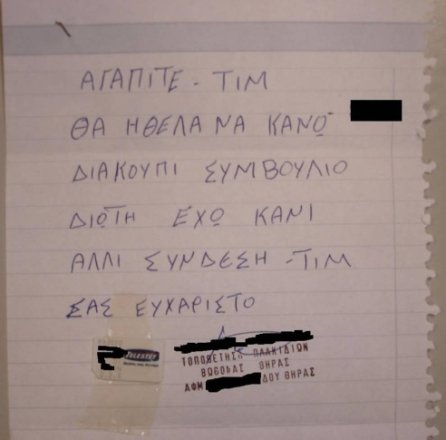 ΑΓΑΠΙΤΕ - ΤΙΜ
ΘΑ ΗΘΕΛΑ ΝΑ ΚΑΝΩ
ΔΙΑΚΟΥΠΙ ΣΥΜΒΟΥΛΙΟ
ΔΙΩΤΗ ΕΧΩ ΚΑΝΙ
ΑΛΛΙ ΣΥΝΔΕΣΗ - ΤΙΜ
ΣΑΣ ΕΥΧΑΡΙΣΤΟ
TELESTET
ΤΟΠΟΘΕΤΗΣΗ ΠΛΑΚΙΔΙΩΝ
ΒΩΘΩΝΑΣ ΘΗΡΑΣ
ΑΦΜ ΔΟΥ ΘΗΡΑΣ